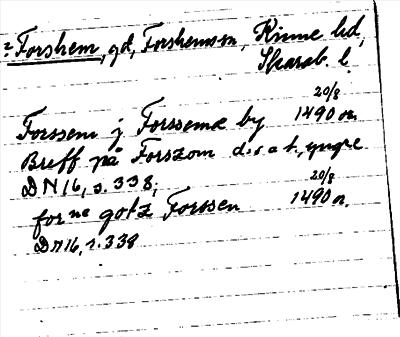 2 Forshem, gd, Forshems sn, Kinne hd,
Skarab. l.
Forssem j Forssema by 20/8 1490 or.
Breff på Forszom d. s a t., yngre
DN 16, s. 338;
for ne gotz Forssen 20/8 1490 n.
DN 16, s. 338